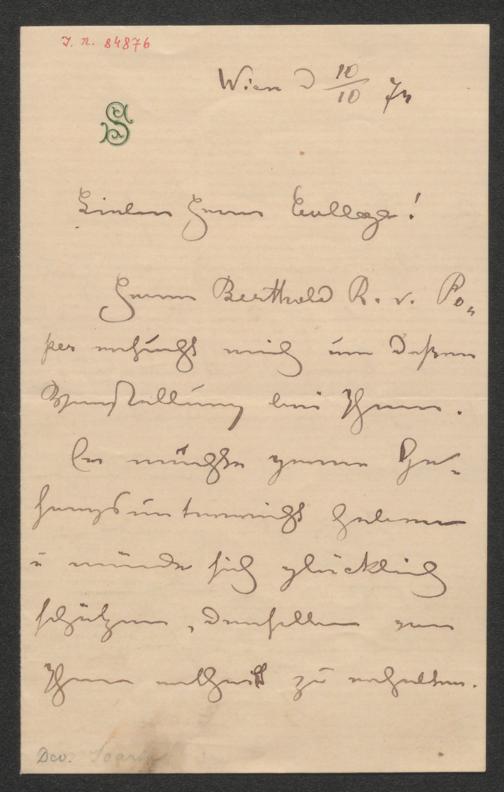 I. N. 84876
Wien d 10/10 73
S
Lieber Herr College!
Herr Berthold R. v. Po-
per ersucht mich um dessen
Vorstellung bei Ihnen.
Er möchte gerne Ge-
sangsunterricht haben
u würde sich glücklich
schätzen, denselben von
Ihnen ertheilt zu erhalten.
Dev.